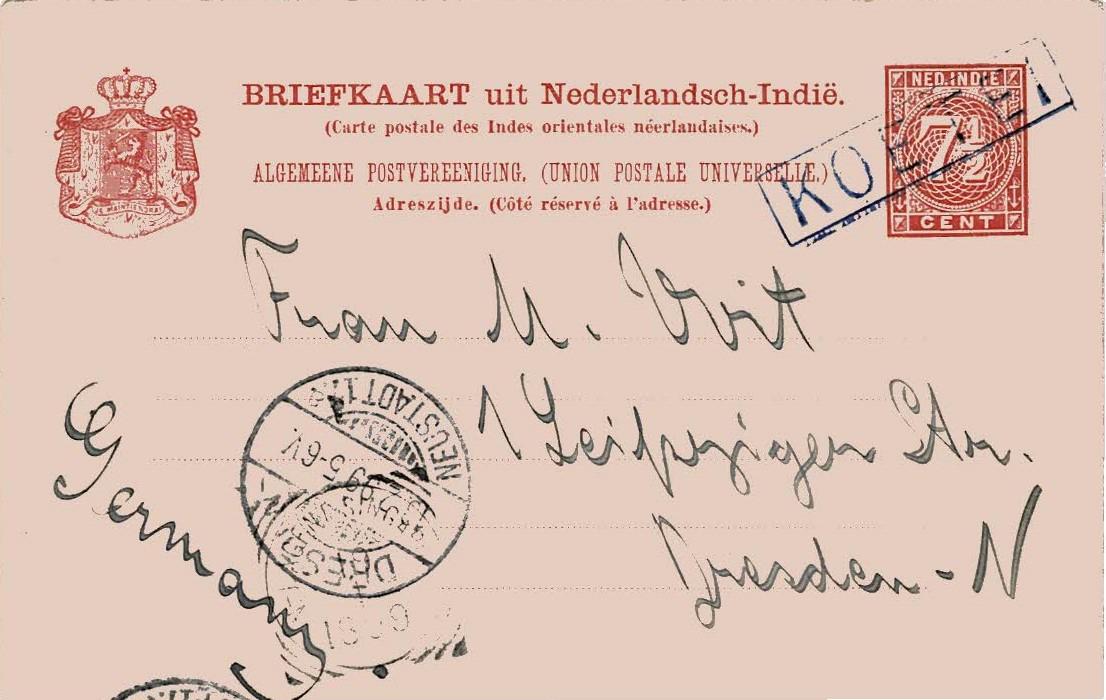 BRIEFKAART uit Nederlandsch-Indië.
(Carte postale des Indes orientales néerlandaises.)
ALGEMEENE POSTVEREENIGING. (UNION POSTALE UNIVERSELLE.)
Adreszijde. (Côté réservé à l'adresse.)
JE MAINTIENDRAI
NED. INDIE
7 1/2
CENT
KOETEI
Frau M. Voit
1 Leipziger Str.
Dresden - N
Germany
DRESDEN
NEUSTADT 1
5-6 V.